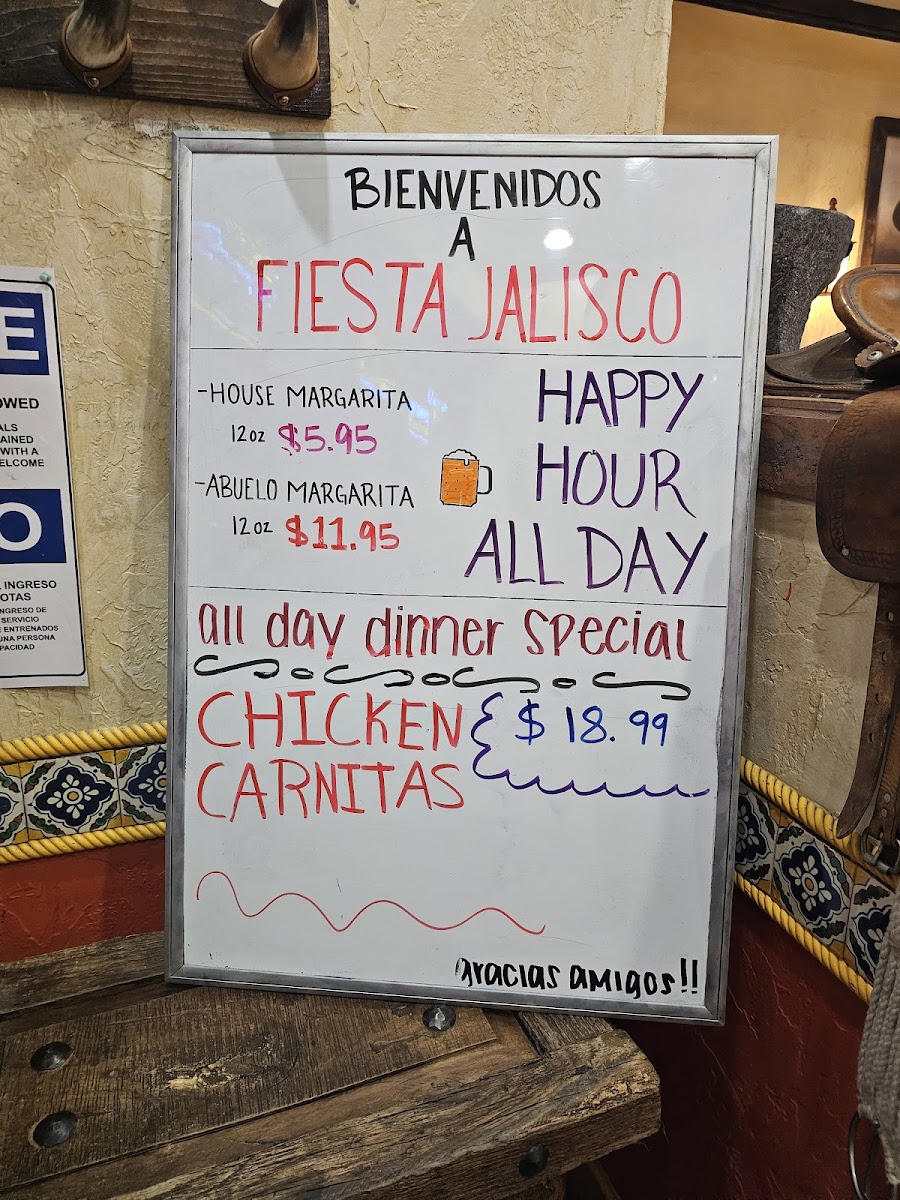 BIENVENIDOS
A
FIESTA JALISCO
-HOUSE MARGARITA
12oz $5.95
-ABUELO MARGARITA
12oz $11.95
HAPPY
HOUR
ALL DAY
all day dinner special
CHICKEN
CARNITAS
$18.99
Gracias amigos!!
E
OWED
ALS
AINED
WITH A
ELCOME
O
INGRESO
OTAS
NGRESO DE
SERVICIO
E ENTRENADOS
UNA PERSONA
PACIDAD